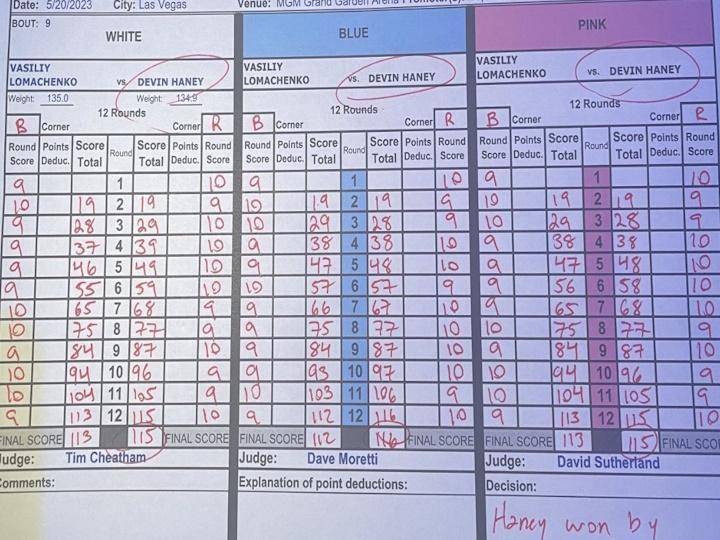 Date: 5/20/2023 City: Las Vegas Venue: MGM Grand Garden Arena
BOUT: 9
WHITE BLUE PINK
VASILIY VASILIY VASILIY
LOMACHENKO vs. DEVIN HANEY LOMACHENKO vs. DEVIN HANEY LOMACHENKO vs. DEVIN HANEY
Weight: 135.0 Weight: 134.9
12 Rounds 12 Rounds 12 Rounds
B Corner Corner R B Corner Corner R B Corner Corner R
Round Points Score Score Points Round Round Points Score Score Points Round Round Points Score Score Points Round
Score Deduc. Total Round Total Deduc. Score Score Deduc. Total Round Total Deduc. Score Score Deduc. Total Round Total Deduc. Score
9 1 10 9 1 10 9 1 10
10 19 2 19 9 10 19 2 19 9 10 19 2 19 9
9 28 3 29 10 10 29 3 28 9 10 29 3 28 9
9 37 4 39 10 9 38 4 38 10 9 38 4 38 10
9 46 5 49 10 9 47 5 48 10 9 47 5 48 10
9 55 6 59 10 10 57 6 57 9 9 56 6 58 10
10 65 7 68 9 9 66 7 67 10 9 65 7 68 10
10 75 8 77 9 9 75 8 77 10 10 75 8 77 9
9 84 9 87 10 9 84 9 87 10 9 84 9 87 10
10 94 10 96 9 9 93 10 97 10 10 94 10 96 9
10 104 11 105 9 10 103 11 106 9 10 104 11 105 9
9 113 12 115 10 9 112 12 116 10 9 113 12 115 10
FINAL SCORE 113 115 FINAL SCORE FINAL SCORE 112 116 FINAL SCORE FINAL SCORE 113 115 FINAL SCO
Judge: Tim Cheatham Judge: Dave Moretti Judge: David Sutherland
Comments: Explanation of point deductions: Decision:
Haney won by